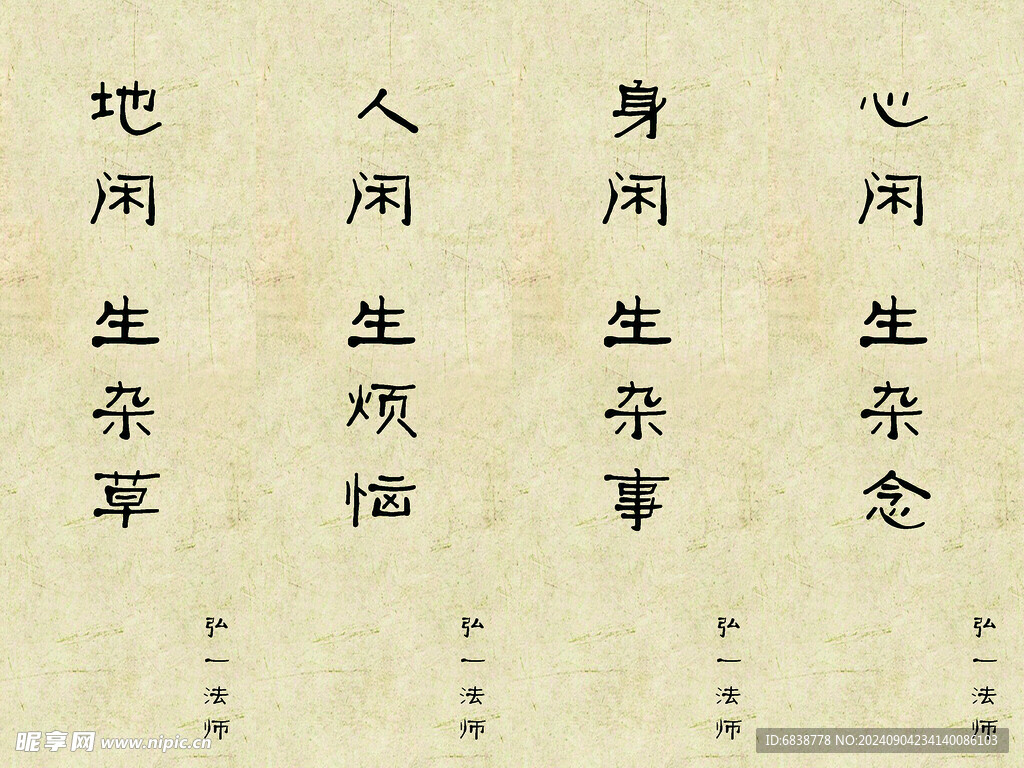 地闲
生杂草
弘一法师
人闲
生烦恼
弘一法师
身闲
生杂事
弘一法师
心闲
生杂念
弘一法师
昵享网 www.nipic.cn
ID:6838778 NO:20240904234140086103